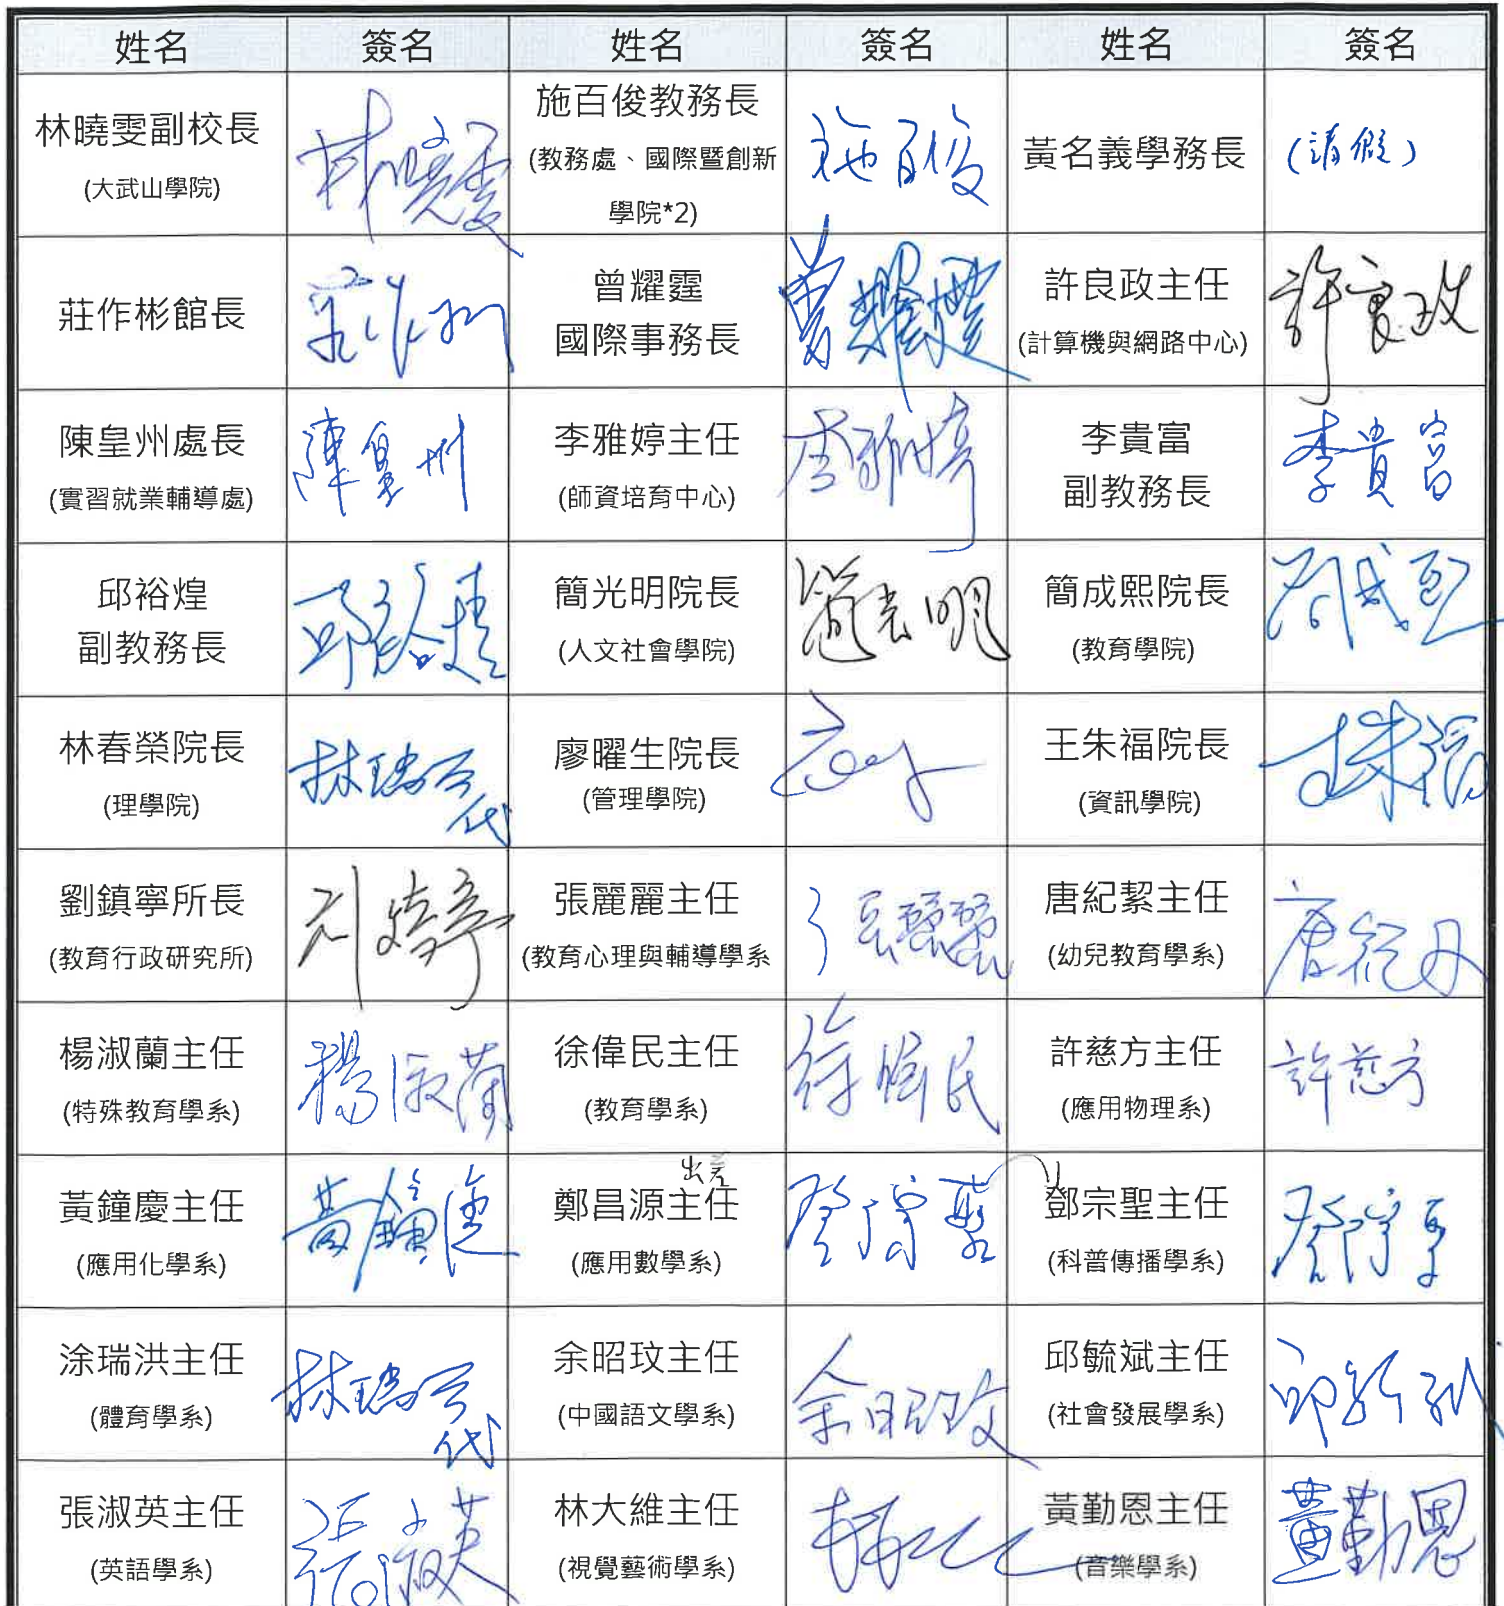 姓名 簽名 姓名 簽名 姓名 簽名
林曉雯副校長
(大武山學院)
林曉雯
施百俊教務長
(教務處、國際暨創新
學院*2)
施百俊
黃名義學務長
(請假)
莊作彬館長
莊作彬
曾耀霆
國際事務長
曾耀霆
許良政主任
(計算機與網路中心)
許良政
陳皇州處長
(實習就業輔導處)
陳皇州
李雅婷主任
(師資培育中心)
李雅婷
李貴富
副教務長
李貴富
邱裕煌
副教務長
邱裕煌
簡光明院長
(人文社會學院)
簡光明
簡成熙院長
(教育學院)
簡成熙
林春榮院長
(理學院)
林瑞 代
廖曜生院長
(管理學院)
王朱福院長
(資訊學院)
王朱福
劉鎮寧所長
(教育行政研究所)
刘鎮寧
張麗麗主任
(教育心理與輔導學系
張麗麗
唐紀絜主任
(幼兒教育學系)
唐紀
楊淑蘭主任
(特殊教育學系)
楊淑蘭
徐偉民主任
(教育學系)
徐偉民
許慈方主任
(應用物理系)
許慈方
黃鐘慶主任
(應用化學系)
黃鐘慶
出差
鄭昌源主任
(應用數學系)
鄧宗聖
鄧宗聖主任
(科普傳播學系)
鄧宗聖
涂瑞洪主任
(體育學系)
林瑞 代
余昭玟主任
(中國語文學系)
余昭玟
邱毓斌主任
(社會發展學系)
邱毓斌
張淑英主任
(英語學系)
張淑英
林大維主任
(視覺藝術學系)
黃勤恩主任
(音樂學系)
黃勤恩